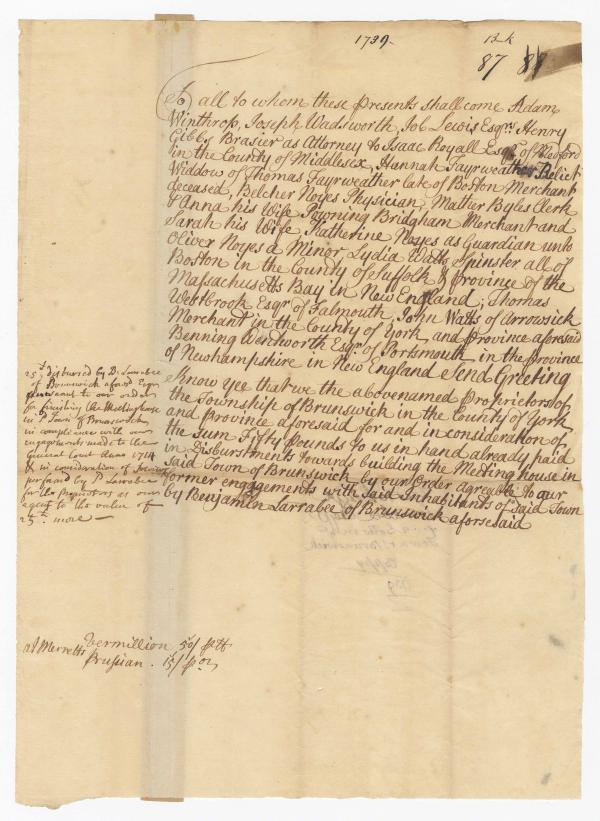 1739.
87
To all to whom these Presents shall come Adam
Winthrop, Joseph Wadsworth, Job Lewis Esqrs Henry
Gibbs Brasier as Attorney to Isaac Royall Esqr of Medford
in the County of Middlesex, Hannah Fayrweather Relict
Widdow of Thomas Fayrweather late of Boston Merchant
deceased, Belcher Noyes Physician, Mather Byles Clerk
& Anna his Wife Powning Bridgham Merchant and
Sarah his Wife, Katherine Noyes as Guardian unto
Oliver Noyes a Minor, Lydia Watts Spinster all of
Boston in the County of Suffolk & Province of the
Massachusetts Bay in New England; Thomas
Westbrook Esqr of Falmouth, John Watts of Arrowsick
Merchant in the County of York and Province aforesaid
Benning Wentworth Esqr of Portsmouth in the Province
of Newhampshire in New England Send Greeting
Know yee that we the abovenamed Proprietors of
the Township of Brunswick in the County of York
and province aforesaid for and in consideration of
the Sum Fifty Pounds to us in hand already paid
in Disburstments towards building the Meeting house in
said Town of Brunswick by our Order agreyble to our
former engagements with Said Inhabitants of Said Town
by Benjamin Larrabee of Brunswick aforesaid
25£ disbursed by B. Larrabee
of Brunswick aforesd Esqr
pursuant to our orders
for finishing the Meetinghouse
in sd Town of Brunswick
in complyance with our
engagements made to the
General Court Anno 1714
& in consideration of Services
performd by sd Larrabee
for the Proprietors as our
agent to the value of
25£ more —
at Merretts Vermillion 50/ p lb
Prusian . 15/ p oz